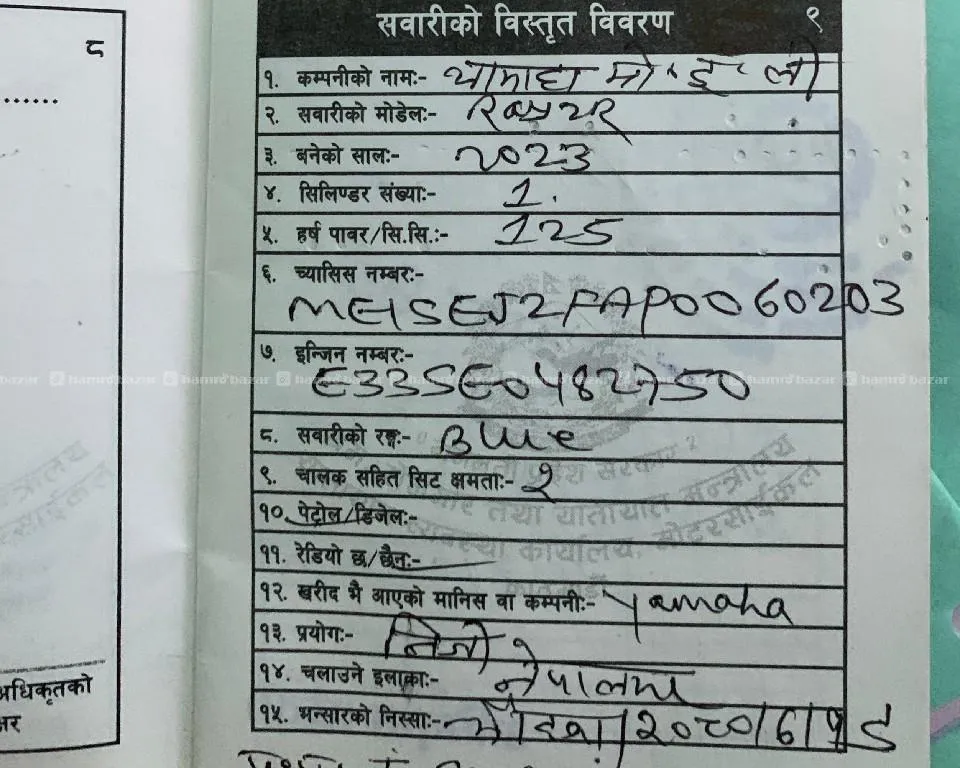 ८
सवारीको विस्तृत विवरण ९
१. कम्पनीको नामः- यामाहा मो. ई. ली
२. सवारीको मोडेलः- RayZR
३. बनेको सालः- 2023
४. सिलिण्डर संख्याः- 1.
५. हर्ष पावर/सि.सि.ः- 125
६. च्यासिस नम्बरः-
ME1SEJ2FAP0060203
७. इन्जिन नम्बरः-
E33SE0482750
hamrobazar hamrobazar hamrobazar hamrobazar hamrobazar hamrobazar hamrobazar hamrobazar
८. सवारीको रङ्गः- Blue
९. चालक सहित सिट क्षमताः- २
१०. पेट्रोल/डिजेलः-
११. रेडियो छ/छैनः-
१२. खरीद भै आएको मानिस वा कम्पनीः- Yamaha
१३. प्रयोगः- निजी
१४. चलाउने इलाकाः- नेपालभर
१५. भन्सारको निस्साः-
अधिकृतको